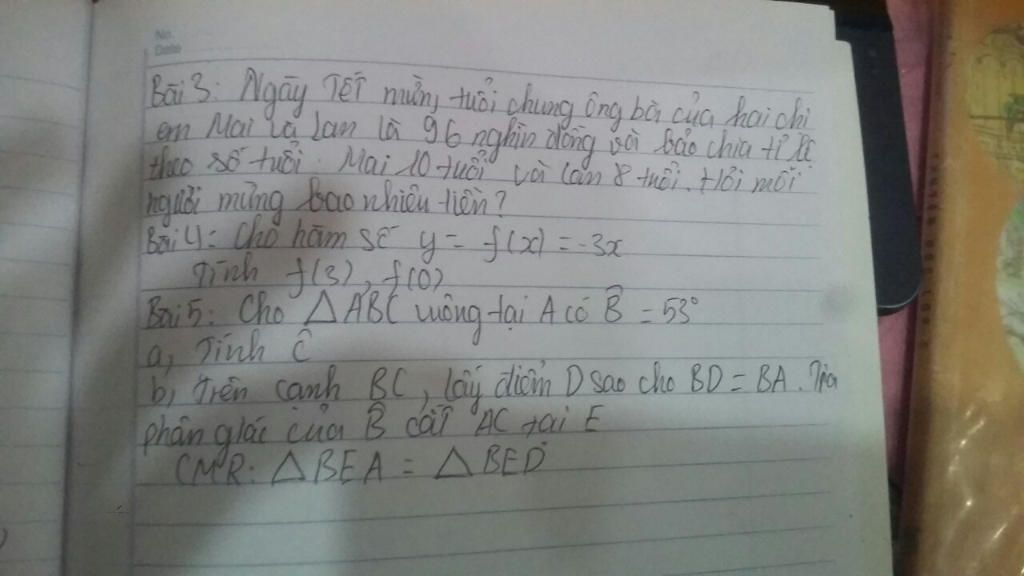 No.
Date
Bài 3: Ngày Tết mừng tuổi chung ông bà của hai chị
em Mai và Lan là 96 nghìn đồng và bảo chia tỉ lệ
theo số tuổi. Mai 10 tuổi và Lan 8 tuổi. Hỏi mỗi
người mừng bao nhiêu tiền?
Bài 4: Cho hàm số y = f(x) = -3x
Tính f(3), f(0)
Bài 5: Cho △ABC vuông tại A có B̂ = 53°
a, Tính Ĉ
b, Trên cạnh BC, lấy điểm D sao cho BD = BA. Tia
phân giác của B̂ cắt AC tại E
CMR: △BEA = △BED